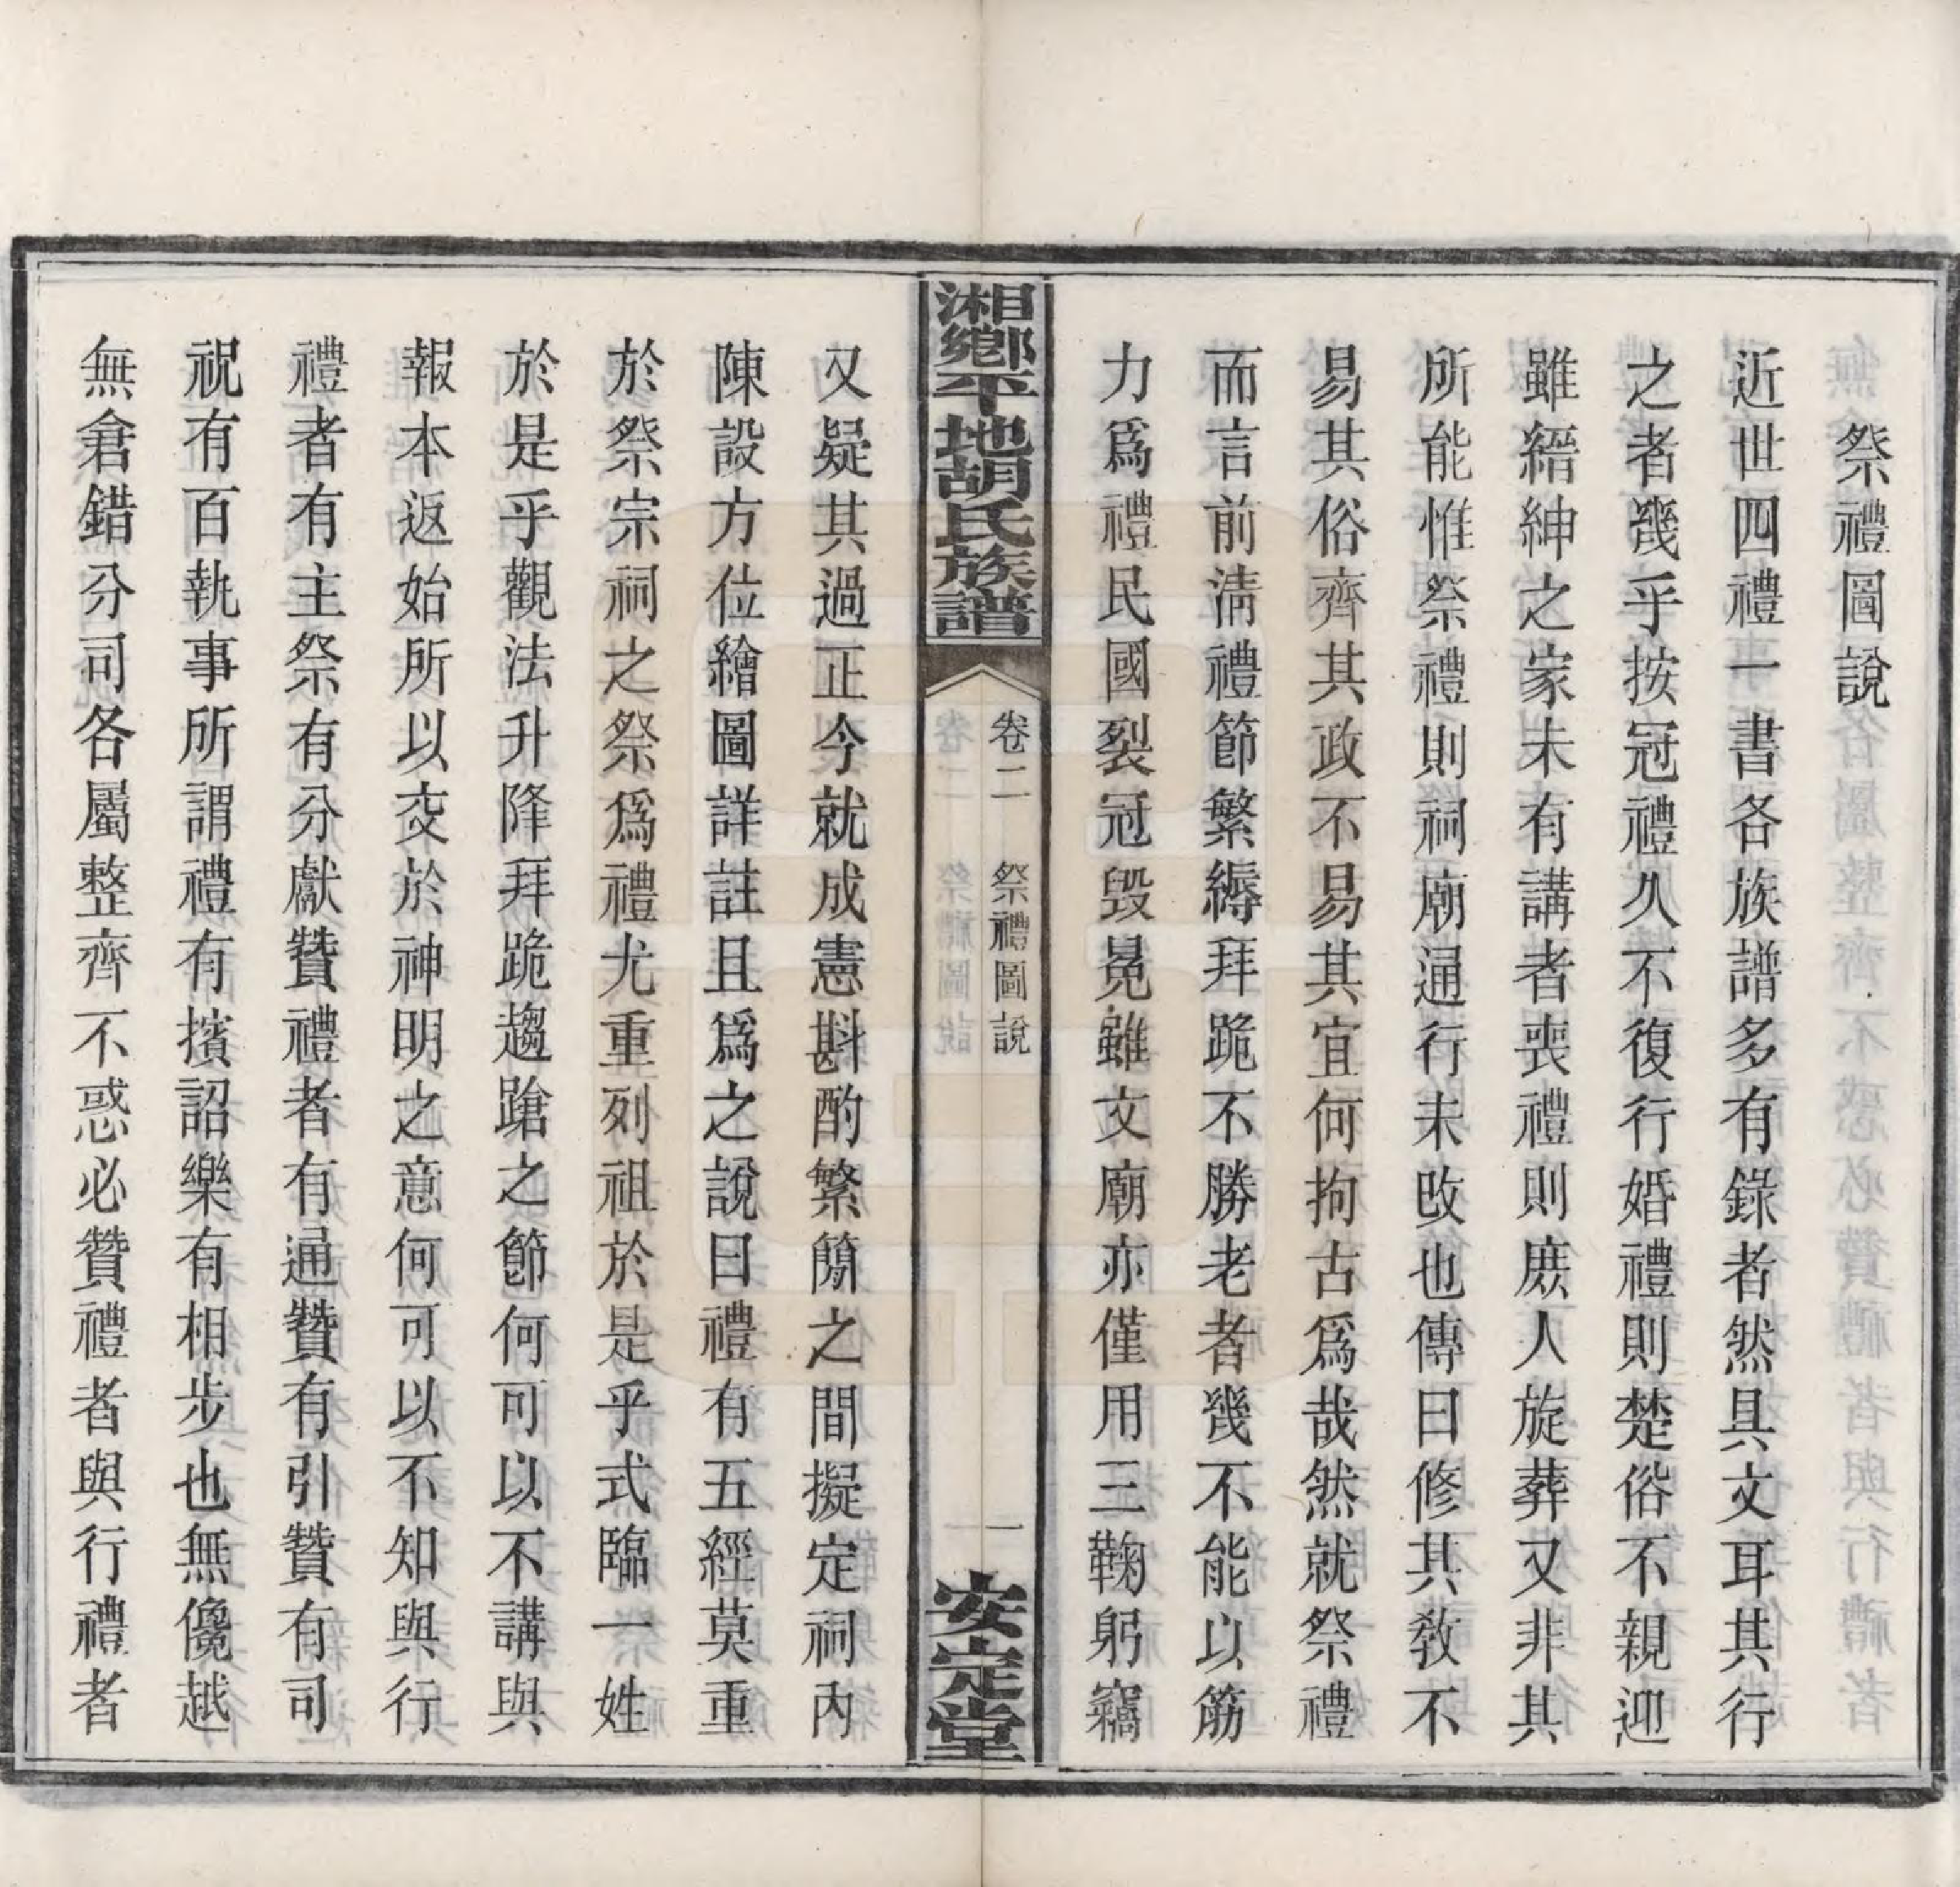 祭禮圖說
近世四禮一書各族譜多有錄者然具文耳其行
之者幾乎按冠禮久不復行婚禮則楚俗不親迎
雖縉紳之家未有講者喪禮則庶人旋葬又非其
所能惟祭禮則祠廟通行未改也傳曰修其教不
易其俗齊其政不易其宜何拘古爲哉然就祭禮
而言前淸禮節繁縟拜跪不勝老者幾不能以筋
力爲禮民國裂冠毀冕雖文廟亦僅用三鞠躬竊
湘鄉平地胡氏族譜
卷二 祭禮圖說
一
安定堂
又疑其過正今就成憲斟酌繁簡之間擬定祠內
陳設方位繪圖詳註且爲之說曰禮有五經莫重
於祭宗祠之祭爲禮尤重列祖於是乎式臨一姓
於是乎觀法升降拜跪趨蹌之節何可以不講與
報本返始所以交於神明之意何可以不知與行
禮者有主祭有分獻贊禮者有通贊有引贊有司
祝有百執事所謂禮有擯詔樂有相步也無儳越
無倉錯分司各屬整齊不惑必贊禮者與行禮者